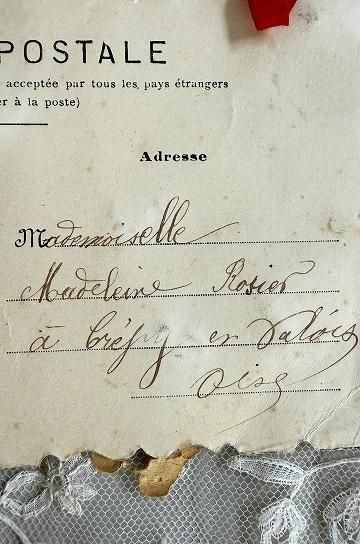 POSTALE
acceptée par tous les pays étrangers
er à la poste)
Adresse
Mademoiselle
Madeleine Rosier
à Crépy en Valois
Oise